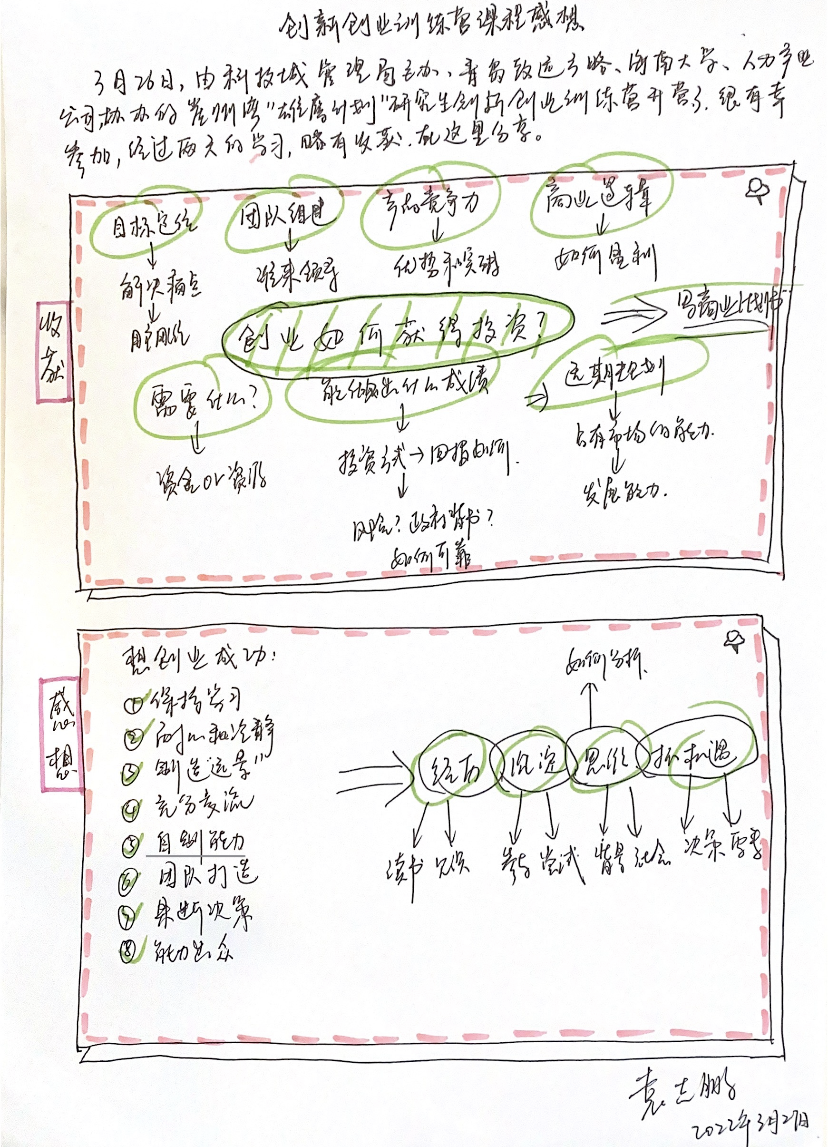 创新创业训练营课程感想
3月26日，由科技城管理局主办、青岛致远方略、海南大学、人力产业
公司协办的崖州湾“雄鹰计划”研究生创新创业训练营开营了，很有幸
参加，经过两天的学习，略有收获，在这里分享。
目标定位 团队组建 产品竞争力 商业逻辑
解决痛点 谁来领导 优势和突破 如何盈利
收获
创业如何获得投资？ 写商业计划书
需要什么？ 能做出什么成绩 远期规划
资金or资源 投资方式→回报如何. 占有市场的能力.
发展能力.
风险？政府背书？
如何可靠
感想
想创业成功：
① 保持学习
② 耐心和冷静
③ 制造“远景”
④ 充分交流
⑤ 自制能力
⑥ 团队打造
⑦ 果断决策
⑧ 能力出众
如何分析.
经历 沉淀 思维 抓机遇
读书 参与 尝试 背景 社会 决策 需要
袁志鹏
2022年3月27日